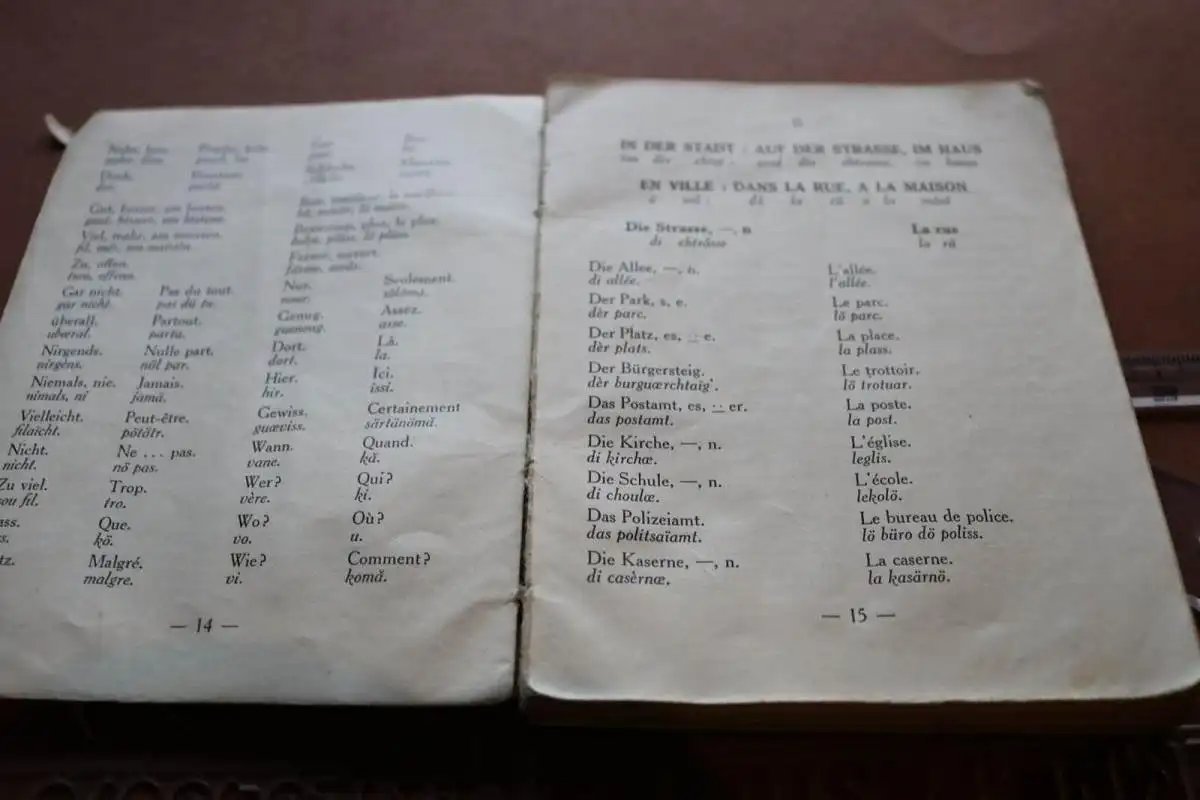 Gut, besser, am besten.
Viel, mehr, am meisten.
Zu, offen. Fermé, ouvert.
Gar nicht. Pas du tout. Nur. Seulement.
gar nicht. pas dü tu. nour. sölömã.
überall. Partout. Genug. Assez.
ubœral. partu. guœnoug. asse.
Nirgends. Nulle part. Dort. Là.
nirgèns. nöl par. dort. la.
Niemals, nie. Jamais. Hier. Ici.
nimals, ni jamä. hir. issi.
Vielleicht. Peut-être. Gewiss. Certainement
filaïcht. pötätr. guœviss. särtänömã.
Nicht. Ne ... pas. Wann. Quand.
nicht. nö pas. vane. kã.
Zu viel. Trop. Wer? Qui?
sou fil. tro. vère. ki.
ass. Que. Wo? Où?
s. kö. vo. u.
tz. Malgré. Wie? Comment?
malgre. vi. komã.
— 14 —
IN DER STADT : AUF DER STRASSE, IM HAUS
EN VILLE : DANS LA RUE, A LA MAISON
Die Strasse, —, n La rue
di chtrâsse la rü
Die Allee, —, n. L'allée.
di allée. l'allée.
Der Park, s, e. Le parc.
dèr parc. lö parc.
Der Platz, es, ¨ e. La place.
dèr plats. la plass.
Der Bürgersteig. Le trottoir.
dèr burguœrchtaig. lö trotuar.
Das Postamt, es, ¨ er. La poste.
das postamt. la post.
Die Kirche, —, n. L'église.
di kirchœ. leglis.
Die Schule, —, n. L'école.
di choulœ. lekolö.
Das Polizeiamt. Le bureau de police.
das politsaïamt. lö büro dö poliss.
Die Kaserne, —, n. La caserne.
di casèrnœ. la kasärnö.
— 15 —